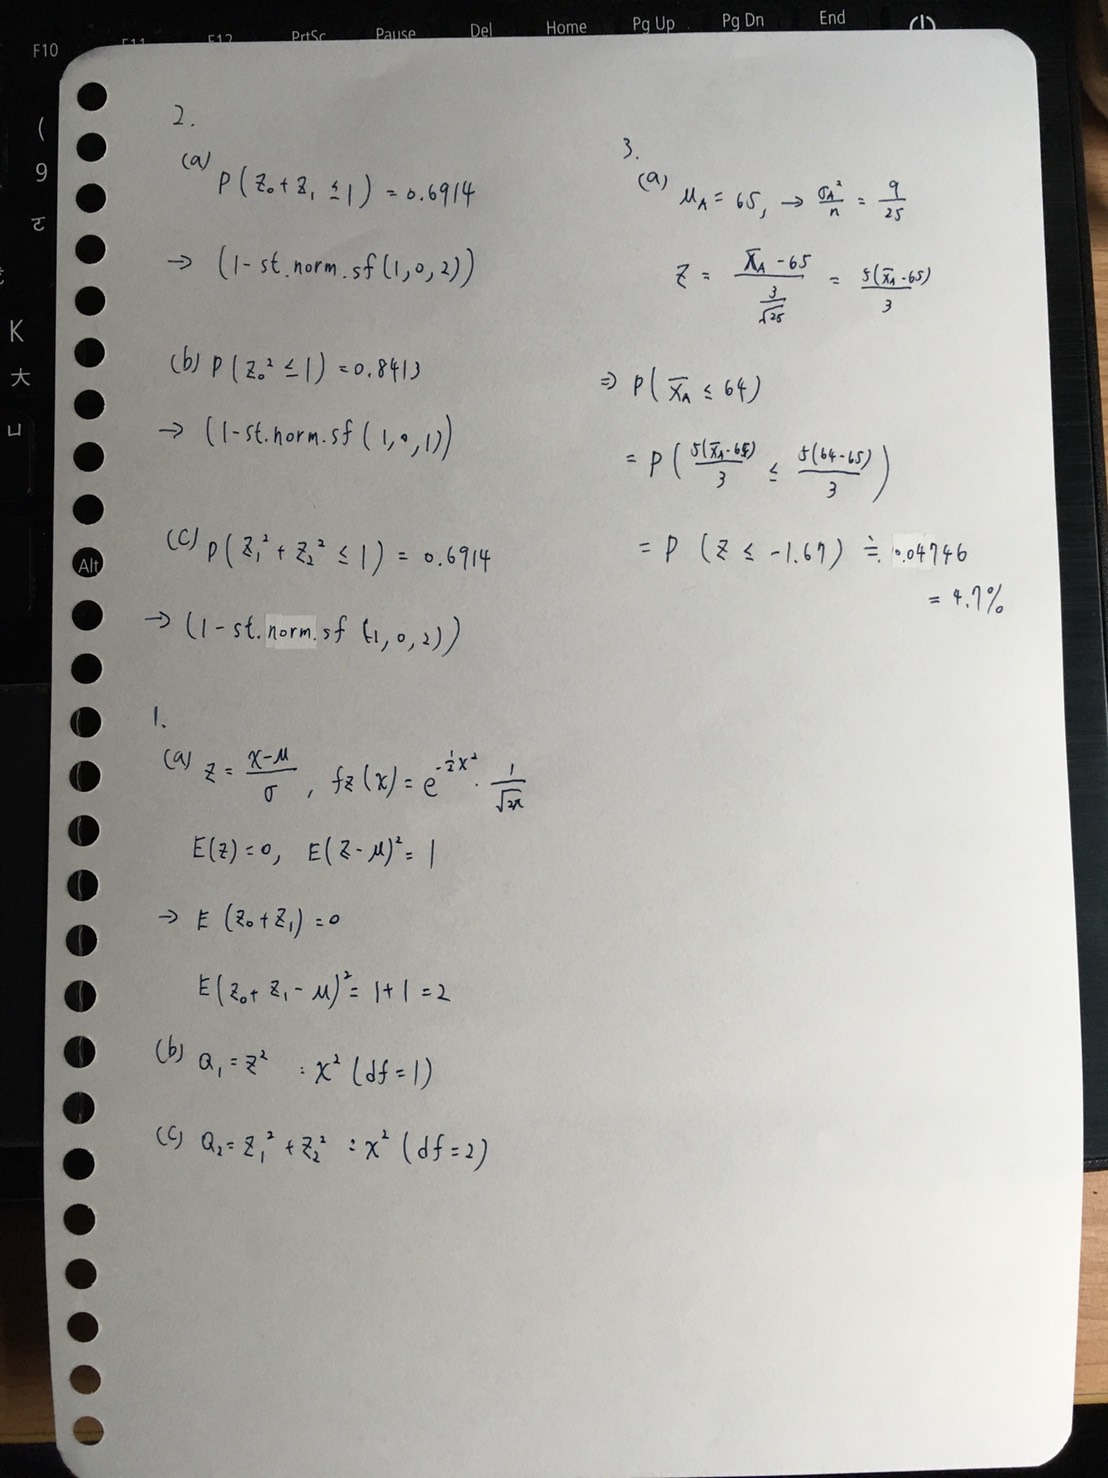 F10 F11 F12 PrtSc Pause Del Home Pg Up Pg Dn End
(
9
ㄷ
K
大
ㄩ
Alt
2.
(a) P(Z₀+Z₁ ≤ 1) = 0.6914
→ (1-st.norm.sf(1,0,2))
(b) P(Z₀² ≤ 1) = 0.8413
→ (1-st.norm.sf(1,0,1))
(c) P(Z₁² + Z₂² ≤ 1) = 0.6914
→ (1-st.norm.sf(1,0,2))
1.
(a) Z = (x-μ)/σ , fz(x) = e^(-½x²) · 1/√2π
E(Z)=0, E(Z-μ)² = 1
→ E(Z₀+Z₁) = 0
E(Z₀+Z₁-μ)² = 1+1 = 2
(b) Q₁ = Z² : χ² (df=1)
(c) Q₂ = Z₁² + Z₂² : χ² (df=2)
3.
(a) μA = 65, → σA²/n = 9/25
Z = (X̄A - 65)/(3/√25) = 5(X̄A-65)/3
⇒ P(X̄A ≤ 64)
= P(5(X̄A-65)/3 ≤ 5(64-65)/3)
= P (Z ≤ -1.67) ≒ 0.04746
= 4.7%